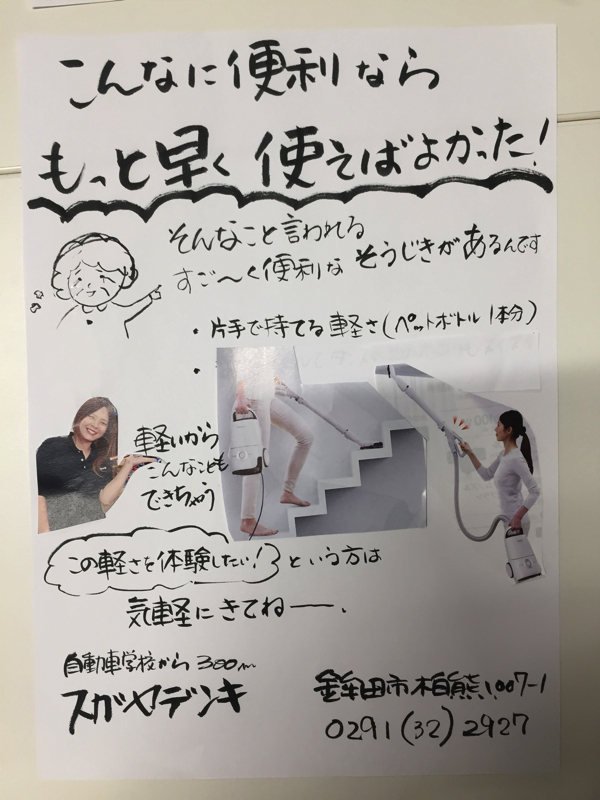 こんなに便利なら
もっと早く使えばよかった!
そんなこと言われる
すご〜く便利なそうじきがあるんです
・片手で持てる軽さ(ペットボトル1本分)
・
軽いから
こんなことも
できちゃう
この軽さを体験したい! という方は
気軽にきてねー。
自動車学校から300m
スガヤデンキ
鉾田市柏熊1007-1
0291(32)2927